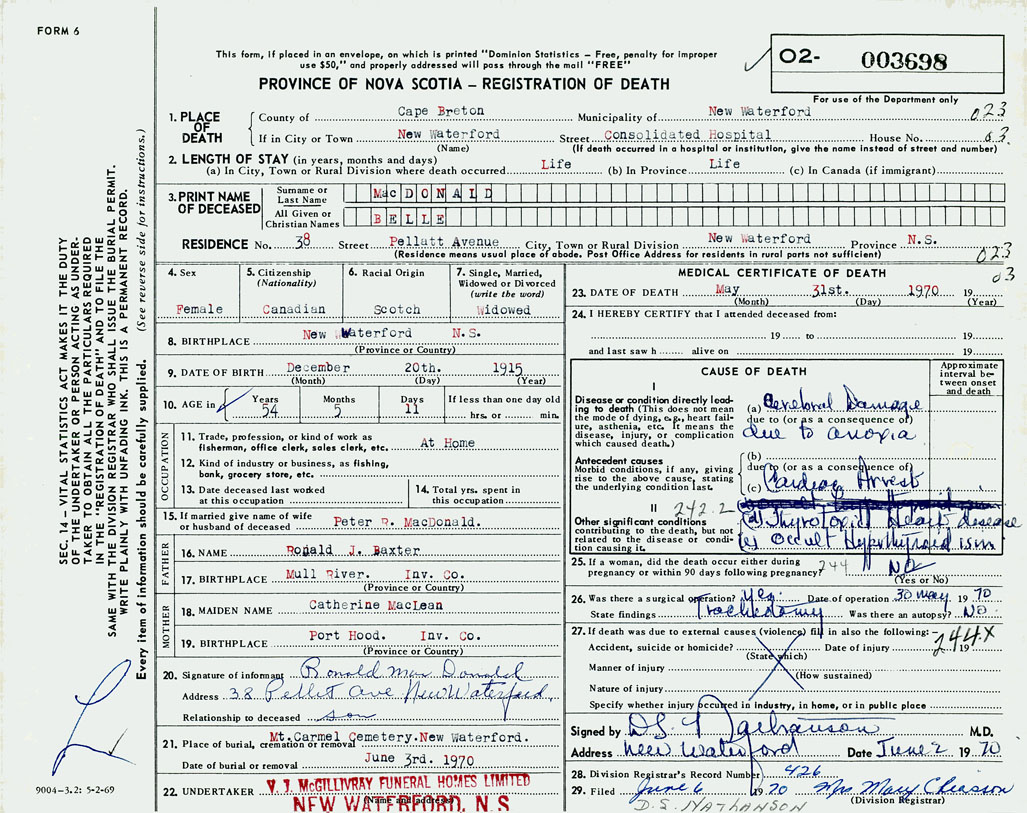 FORM 6
This form, if placed in an envelope, on which is printed "Dominion Statistics – Free, penalty for improper
use $50," and properly addressed will pass through the mail "FREE"
PROVINCE OF NOVA SCOTIA – REGISTRATION OF DEATH
O2- 003698
For use of the Department only
1. PLACE OF DEATH
County of Cape Breton Municipality of New Waterford 023
If in City or Town New Waterford Street Consolidated Hospital House No. 03
(Name) (If death occurred in a hospital or institution, give the name instead of street and number)
2. LENGTH OF STAY (in years, months and days)
(a) In City, Town or Rural Division where death occurred Life (b) In Province Life (c) In Canada (if immigrant)
3. PRINT NAME OF DECEASED
Surname or Last Name MacDONALD
All Given or Christian Names BELLE
RESIDENCE No. 38 Street Pellatt Avenue City, Town or Rural Division New Waterford Province N.S.
(Residence means usual place of abode. Post Office Address for residents in rural parts not sufficient) 023
03
4. Sex
Female
5. Citizenship (Nationality)
Canadian
6. Racial Origin
Scotch
7. Single, Married, Widowed or Divorced (write the word)
Widowed
8. BIRTHPLACE New Waterford N.S.
(Province or Country)
9. DATE OF BIRTH December 20th. 1915
(Month) (Day) (Year)
10. AGE in Years Months Days If less than one day old
54 5 11 hrs. or min.
OCCUPATION
11. Trade, profession, or kind of work as
fisherman, office clerk, sales clerk, etc. At Home
12. Kind of industry or business, as fishing,
bank, grocery store, etc.
13. Date deceased last worked
at this occupation
14. Total yrs. spent in
this occupation
15. If married give name of wife
or husband of deceased Peter R. MacDonald.
FATHER
16. NAME Ronald J. Baxter
17. BIRTHPLACE Mull River. Inv. Co.
(Province or Country)
MOTHER
18. MAIDEN NAME Catherine MacLean
19. BIRTHPLACE Port Hood. Inv. Co.
(Province or Country)
20. Signature of informant Ronald MacDonald
Address 38 Pellet Ave New Waterford
Relationship to deceased son
21. Place of burial, cremation or removal Mt.Carmel Cemetery.New Waterford.
Date of burial or removal June 3rd. 1970
22. UNDERTAKER V. J. McGILLIVRAY FUNERAL HOMES LIMITED
NEW WATERFORD, N.S
(Name and address)
MEDICAL CERTIFICATE OF DEATH
23. DATE OF DEATH May 31st. 1970 19
(Month) (Day) (Year)
24. I HEREBY CERTIFY that I attended deceased from:
19 to 19
and last saw h alive on 19
CAUSE OF DEATH
Approximate interval between onset and death
I
Disease or condition directly leading to death (This does not
mean the mode of dying, e.g., heart failure, asthenia, etc. It means the
disease, injury, or complication
which caused death.)
(a) Cerebral Damage
due to (or as a consequence of)
due to anoxia
Antecedent causes
Morbid conditions, if any, giving
rise to the above cause, stating
the underlying condition last.
(b)
due to (or as a consequence of)
(c) Cardiac Arrest
II 242.2
Other significant conditions
contributing to the death, but not
related to the disease or condition causing it.
(d) Thyrotoxic Heart disease
(e) Occult Hyperthyroidism
25. If a woman, did the death occur either during
pregnancy or within 90 days following pregnancy? 244 NO
(Yes or No)
26. Was there a surgical operation? Yes. Date of operation 30 May 1970
State findings Tracheotomy Was there an autopsy? NO
27. If death was due to external causes (violence) fill in also the following:– 244X
Accident, suicide or homicide? Date of injury 19
(State which)
Manner of injury (How sustained)
Nature of injury
Specify whether injury occurred in industry, in home, or in public place
Signed by M.D.
Address New Waterford Date June 2 1970
28. Division Registrar's Record Number 426
29. Filed June 6 1970 Mrs Mary Chiasson
(Division Registrar)
D. S. NATHANSON
SEC. 14 – VITAL STATISTICS ACT MAKES IT THE DUTY
OF THE UNDERTAKER OR PERSON ACTING AS UNDERTAKER TO OBTAIN ALL THE PARTICULARS REQUIRED
IN THE "REGISTRATION OF DEATH" AND TO FILE THE
SAME WITH THE DIVISION REGISTRAR WHO SHALL ISSUE THE BURIAL PERMIT.
WRITE PLAINLY WITH UNFADING INK. THIS IS A PERMANENT RECORD.
Every item of information should be carefully supplied. (See reverse side for instructions.)
9004-3.2: 5-2-69